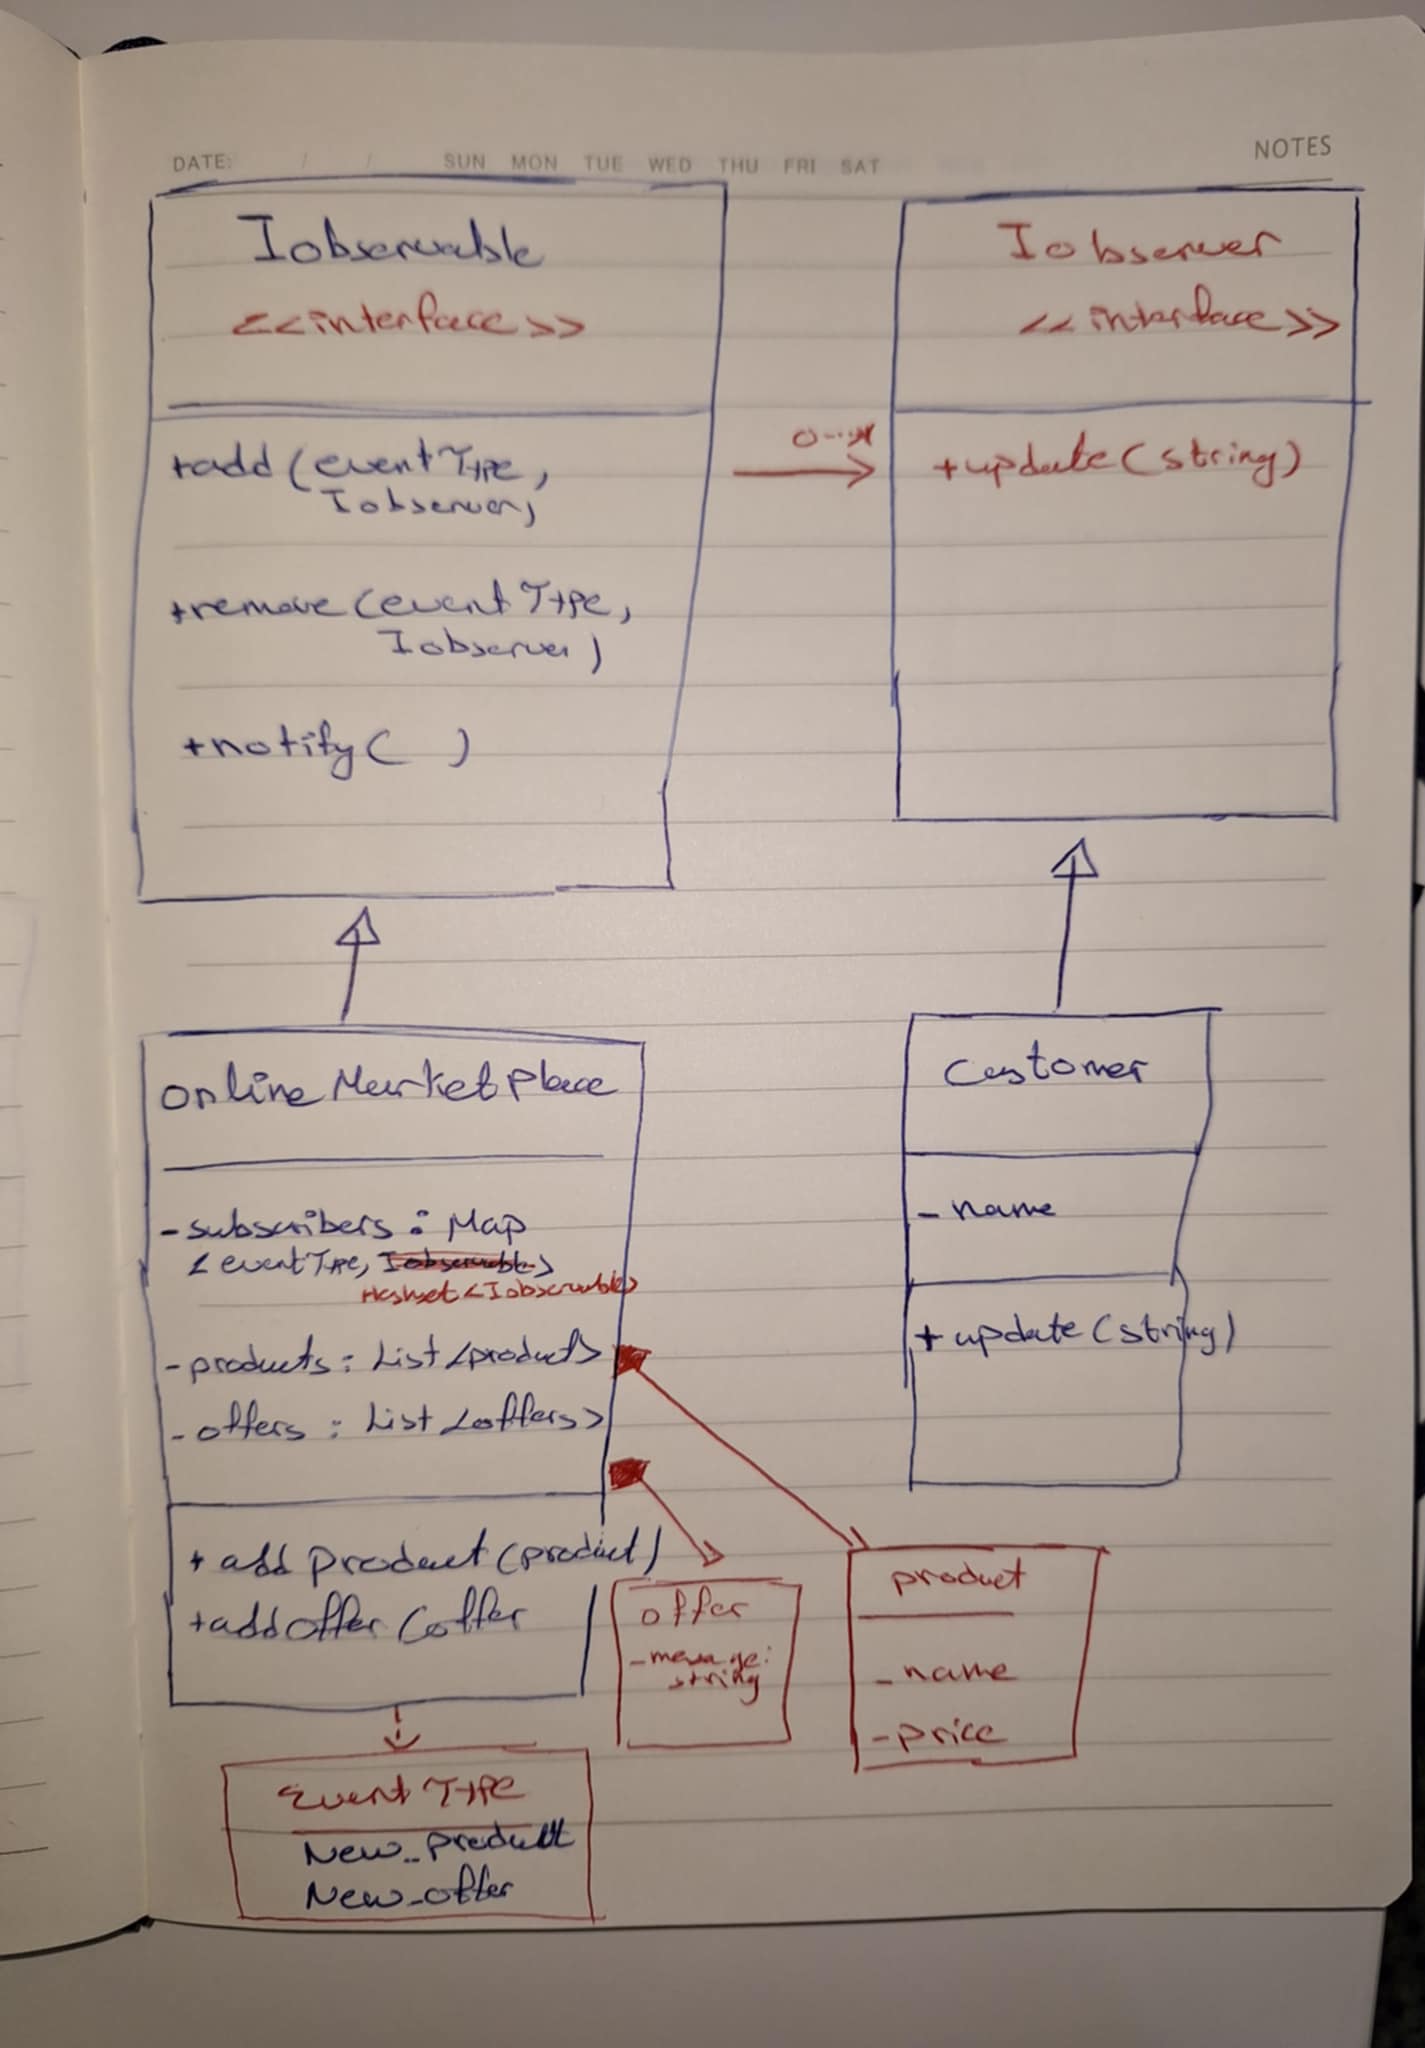 DATE: / / SUN MON TUE WED THU FRI SAT
NOTES
Iobservable
<<interface>>
+add (eventType,
Iobserver)
+remove (eventType,
Iobserver)
+notify ( )
0..*
Iobserver
<<interface>>
+update (string)
OnlineMarketplace
- subscribers : Map
< eventType, Iobservable>
Hashset <Iobservable>
- products : List <product>
- offers : List <offers>
+ add Product (product)
+ addoffer (offer
Customer
- name
+ update (string)
offer
- message:
string
product
- name
- price
Event Type
New_product
New_offer